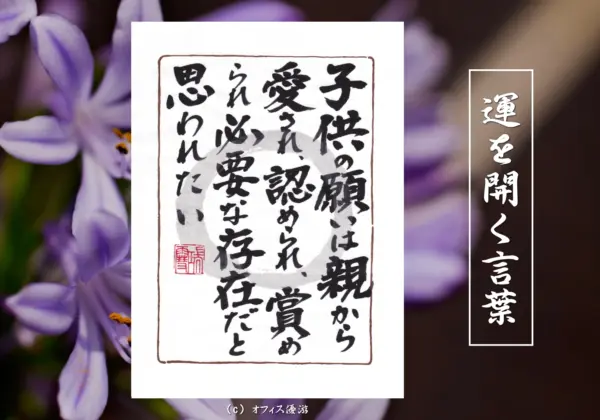 子供の願いは親から
愛され、認められ、賞め
られ必要な存在だと
思われたい
運を開く言葉
(c) オフィス優游